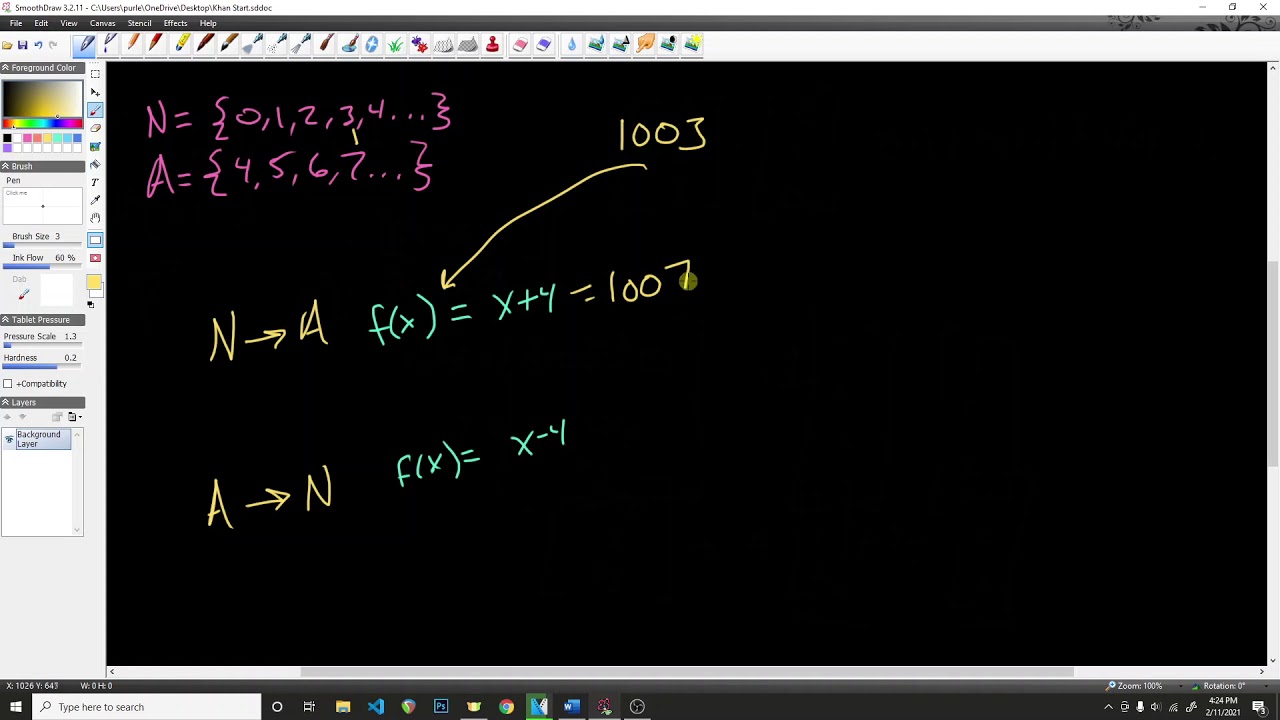 SmoothDraw 3.2.11 - C:\Users\purle\OneDrive\Desktop\Khan Start.sddoc
File Edit View Canvas Stencil Effects Help
Foreground Color
Brush
Pen
Click me
Brush Size 3
Ink Flow 60 %
Dab
Tablet Pressure
Pressure Scale 1.3
Hardness 0.2
+Compatibility
Layers
Background Layer
N = {0,1,2,3,4...}
A = {4,5,6,7...}
1003
N → A f(x) = x+4 = 1007
A → N f(x) = x-4
X: 1026 Y: 643 W: 0 H: 0
Zoom: 100% Rotation: 0°
Type here to search
4:24 PM
2/11/2021